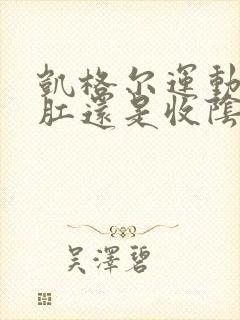 凱格尔運動
肛還是收陰
吳澤碧